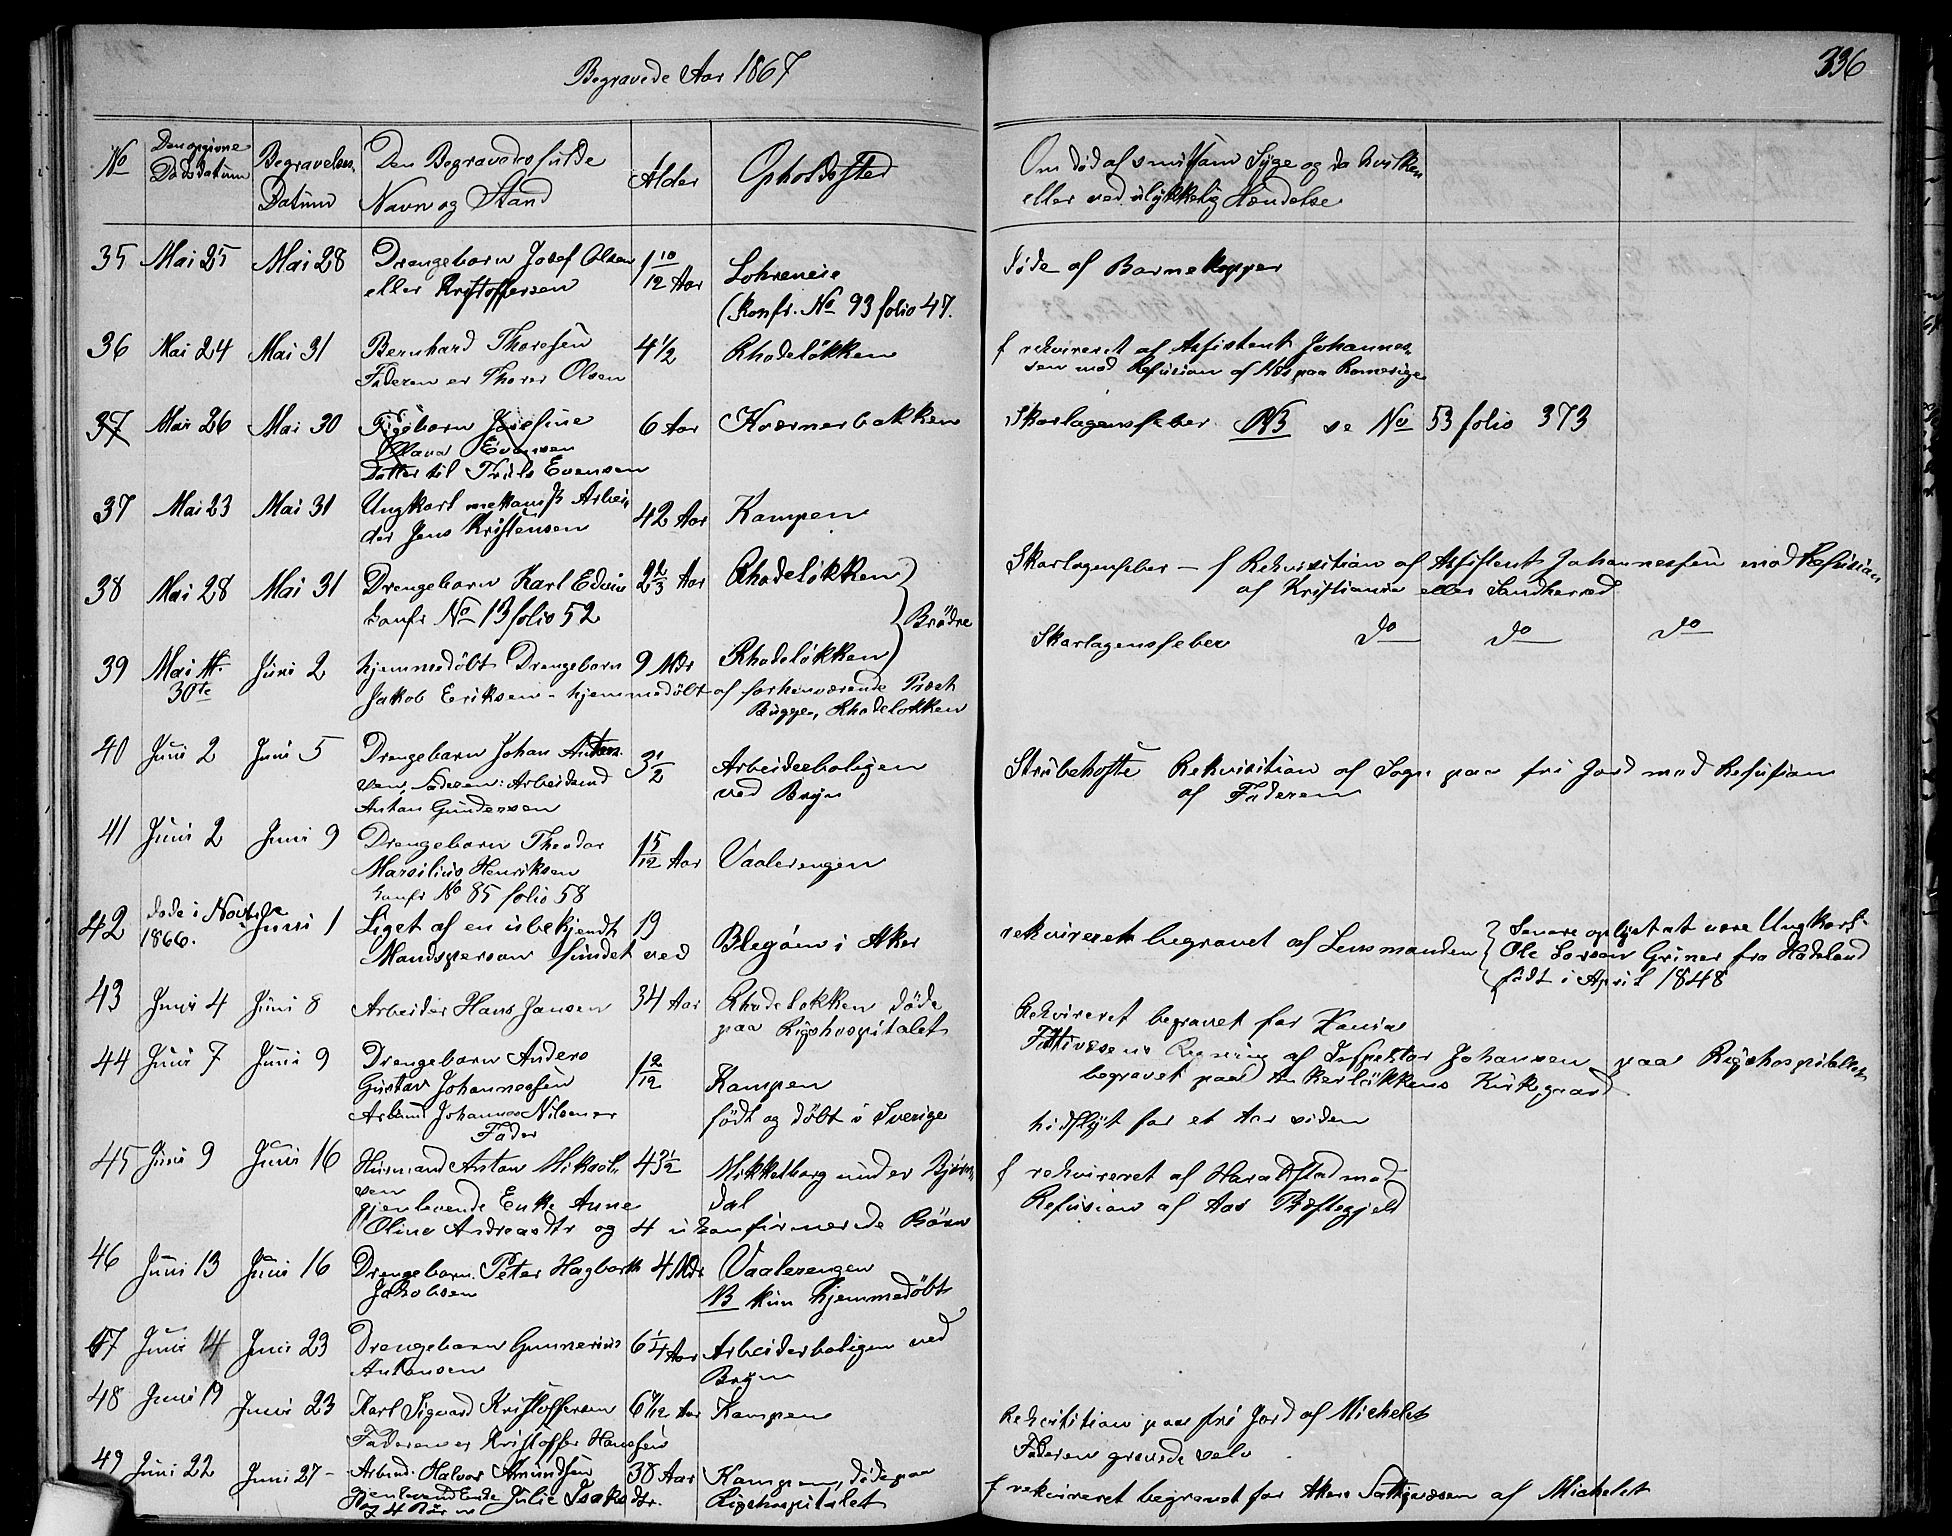 Begravede Aar 1867
336
No
Den opgivne Dødsdatum
Begravelses Datum
Den Begravedes fulde Navn og Stand
Alder
Opholdssted
Om død af smitsom Syge og da hvilken
eller ved ulykkelig Hændelse
35 Mai 25 Mai 28 Drengebarn Josef Olsen 1 10/12 Aar Lohreneie døde af Barnekopper
eller Kristoffersen (Konfr. No 93 folio 47.
36 Mai 24 Mai 31 Bernhard Thoresen 4 1/2 Rhodeløkken f rekvireret af Assistent Johannes-
Faderen er Thorer Olsen sen mod Refusion af Næs paa Romerige
37 Mai 26 Mai 30 Pigebarn Josefine 6 Aar Kværnerbakken Skarlagensfeber NB se No 53 folio 373
Olava Evensen
Datter til Truls Evensen
37 Mai 23 Mai 31 Ungkarl mekanisk Arbei- 42 Aar Kampen
der Jens Kristensen
38 Mai 28 Mai 31 Drengebarn Karl Edvin 2 2/3 Aar Rhodeløkken Skarlagensfeber – f Rekvisition af Assistent Johannessen mod Refusion
konfr No 13 folio 52 Brødre af Kristiania eller Landherred
39 Mai 30te Juni 2 hjemmedøbt Drengebarn 9 Mdr Rhodeløkken Skarlagensfeber do do do
Jakob Eriksen – hjemmedøbt af forhenværende Præst
Bugge, Rhodeløkken
40 Juni 2 Juni 5 Drengebarn Johan Anton- 3 1/2 Arbeiderboligen Strubehoste Rekvisition af Sogn paa fri Jord mod Refusion
sen, Faderen: Arbeidsmd ved Bryn af Faderen
Anton Gundersen
41 Juni 2 Juni 9 Drengebarn Theodor 1 5/12 Aar Vaalerengen
Marsilius Henriksen
konfr No 85 folio 58
42 døde i Novbr 1866. Juni 1 Liget af en ubekjendt 19 Blegøen i Aker rekvireret begravet af Lensmanden
Mandsperson fundet ved
Senere oplyst at være Ungkarl
Ole Larsen Griner fra Hadeland
født i April 1848
43 Juni 4 Juni 8 Arbeider Hans Jansen 34 Aar Rhodeløkken døde Rekvireret begravet for Xanias
paa Rigshospitalet Fattivæsens Regning af Inspektør Johansen paa Rigshospitalet
begravet paa Ankerløkkens Kirkegaard
44 Juni 7 Juni 9 Drengebarn Anders 1 2/12 Kampen
Gustav Johannessen
Arbmd Johannes Nilsen er Fader født og døbt i Sverige hidflyt for et Aar siden
45 Juni 9 Juni 16 Husmand Anton Mikael- 43 1/2 Mikkelborg under Bjørn- f rekvireret af Haraldstad mod
sen dal Refusion af Aas Præstegjeld
gjenlevende Enke Anne
Oline Andreasdtr og 4 ukonfirmerede Børn
46 Juni 13 Juni 16 Drengebarn Peter Hagbarth 4 Mdr Vaalerengen
Jakobsen NB kun hjemmedøbt
47 Juni 14 Juni 23 Drengebarn Gunnerius 6 1/4 Aar Arbeiderboligen ved
Antonsen Bryn
48 Juni 19 Juni 23 Karl Sigvard Kristoffersen Kampen Rekvisition paa fri Jord af Michelet
Faderen er Kristoffer Hansen Faderen gravede selv
49 Juni 22 Juni 27 – Arbmd. Halvor Amundsen 38 Aar Kampen, døde paa f rekvireret begravet for Akers Fattigvæsen af Michelet
gjenlevende Enke Julie Isaksdtr. Rigshospitalet
og 4 Børn